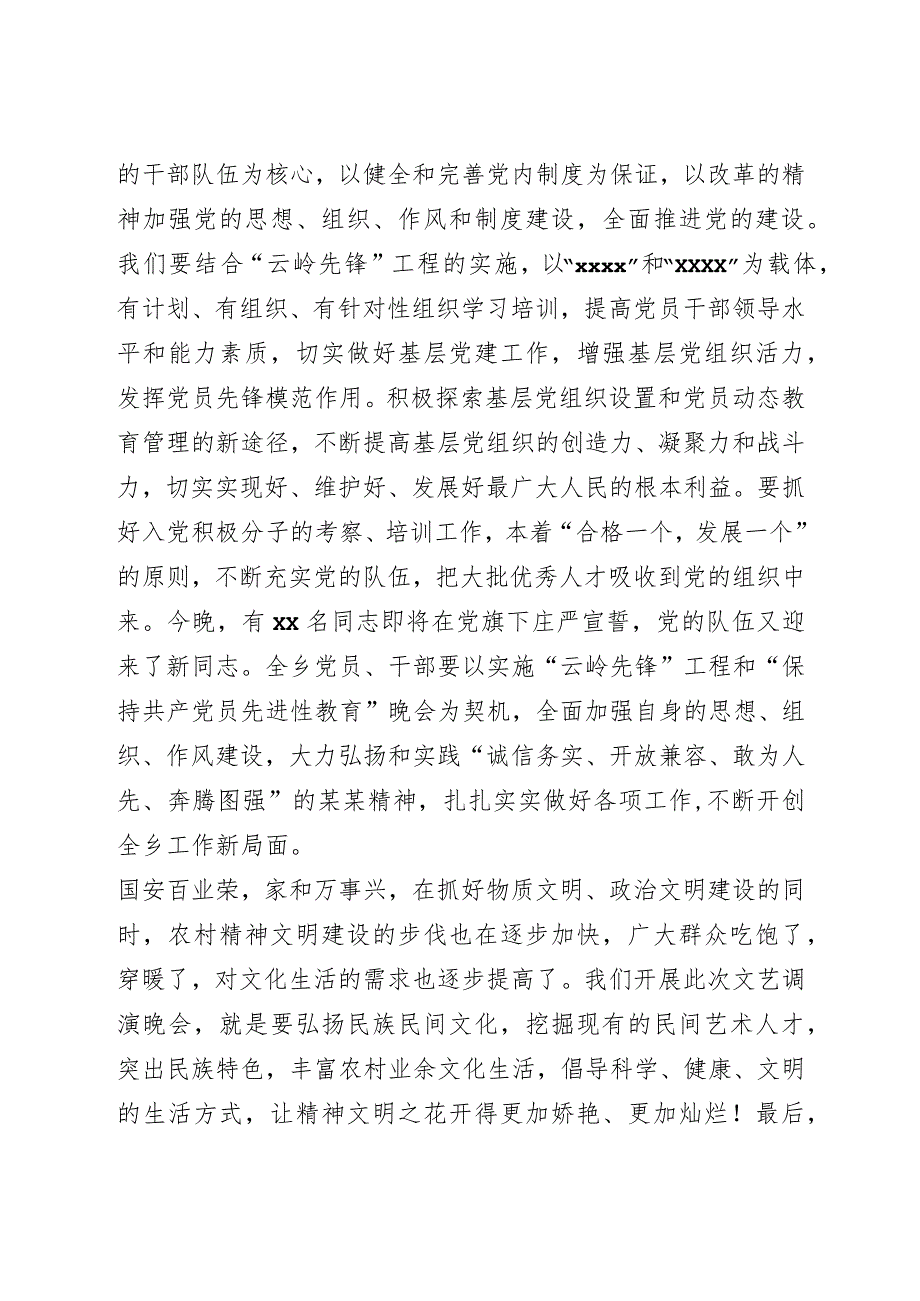 的干部队伍为核心，以健全和完善党内制度为保证，以改革的精
神加强党的思想、组织、作风和制度建设，全面推进党的建设。
我们要结合“云岭先锋”工程的实施，以“xxxx”和“XXXX”为载体，
有计划、有组织、有针对性组织学习培训，提高党员干部领导水
平和能力素质，切实做好基层党建工作，增强基层党组织活力，
发挥党员先锋模范作用。积极探索基层党组织设置和党员动态教
育管理的新途径，不断提高基层党组织的创造力、凝聚力和战斗
力，切实实现好、维护好、发展好最广大人民的根本利益。要抓
好入党积极分子的考察、培训工作，本着“合格一个，发展一个”
的原则，不断充实党的队伍，把大批优秀人才吸收到党的组织中
来。今晚，有 xx 名同志即将在党旗下庄严宣誓，党的队伍又迎
来了新同志。全乡党员、干部要以实施“云岭先锋”工程和“保
持共产党员先进性教育”晚会为契机，全面加强自身的思想、组
织、作风建设，大力弘扬和实践“诚信务实、开放兼容、敢为人
先、奔腾图强”的某某精神，扎扎实实做好各项工作,不断开创
全乡工作新局面。
国安百业荣，家和万事兴，在抓好物质文明、政治文明建设的同
时，农村精神文明建设的步伐也在逐步加快，广大群众吃饱了，
穿暖了，对文化生活的需求也逐步提高了。我们开展此次文艺调
演晚会，就是要弘扬民族民间文化，挖掘现有的民间艺术人才，
突出民族特色，丰富农村业余文化生活，倡导科学、健康、文明
的生活方式，让精神文明之花开得更加娇艳、更加灿烂！最后，